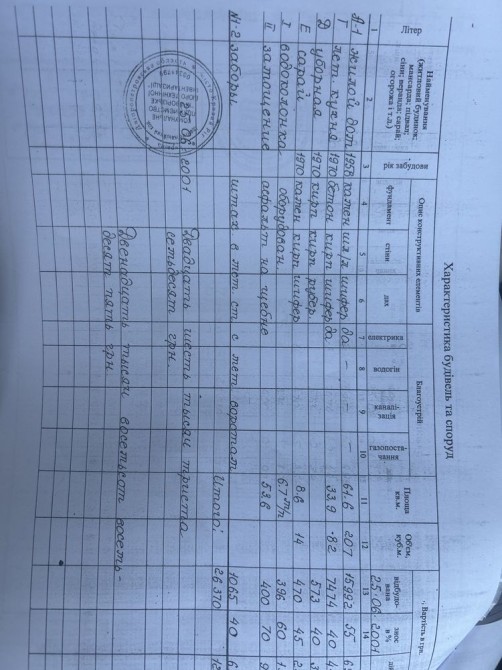 Характеристика будівель та споруд
Літер
Найменування (житловий будинок; мансарда; підвал; сіни; веранда; сарай; огорожа і т.д.)
рік забудови
Опис конструктивних елементів
фундамент
стіни
дах
Благоустрій
електрика
водогін
каналізація
газопостачання
Площа кв.м.
Об'єм, куб.м.
Вартість в грн.
відбудована
знос в %
1 2 3 4 5 6 7 8 9 10 11 12 13 14
25.06.2001
А-1 жилой дом 1958 камен шл/л шифер да - - - 61.6 207 15992 55
Г лет. кухня 1970 бетон кирп шифер да 33.9 82 7474 40
Д уборная 1970 кирп кирп рубер 573 40
Е сарай 1970 камен кирп шифер 8.6 14 470 45
I водоколонка оборудован. 6.7 м/п 396 60
II замощение асфальт на щебне 53.6 400 70
№1-2 заборы штах в мет ст с мет воротам 1065 40
Итого: 26.370
Двадцать шесть тысяч триста семьдесят грн.
Двенадцать тысяч восемьсот восемь-
десят пять грн.
25 06 2001